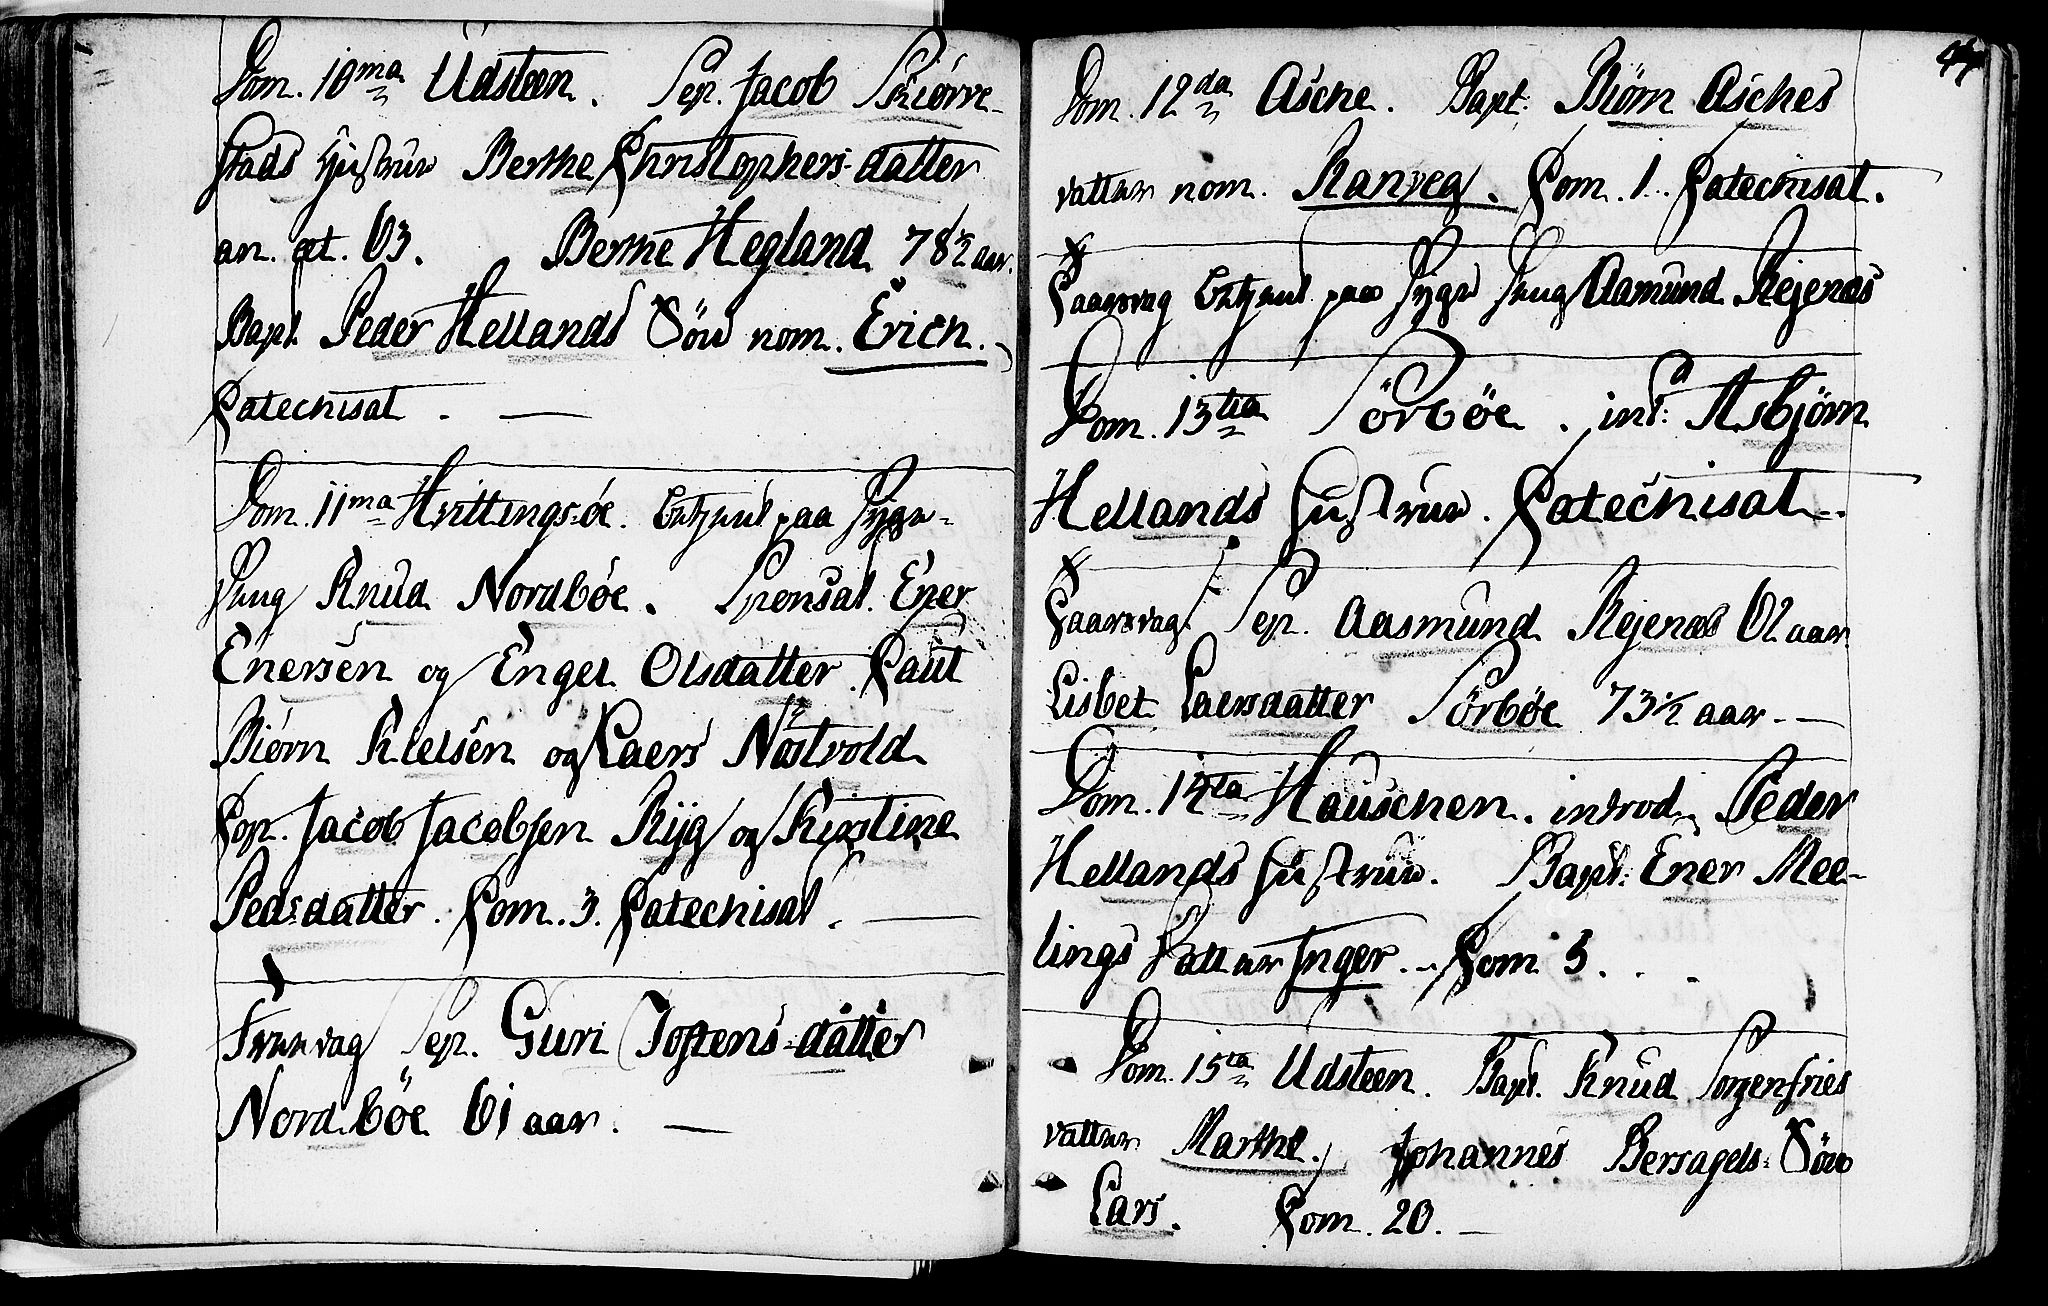 Dom. 10ma Udsteen. Sep. Jacob Skiørre-
stads Hustrue Berthe Christophers-datter
an. æt. 63. Berthe Hegland 78½ aar.
Bapt. Peder Hellands Søn nom. Erich.
Catechisat. —
Dom. 11ma Hvittingsøe. betjent paa Syge-
Seng Knud Nordbøe. Sponsal. Ener
Enersen og Engel Olsdatter. Caut
Biørn Nielsen og Laers Nøstvold
Cop. Jacob Jacobsen Ryg og Kirstine
Peds-datter. Com. 3. Catechisat. —
Fredag Sep. Guri Jostens-datter
Nordbøe 61 aar. —
44
Dom. 12da Asche. Bapt. Biørn Asches
datter nom. Ranveg. Com. 1. Catechisat.
Løversdag betjent paa Syge Seng Aamund Rejenæs
Dom. 13tia Sørbøe. int: Asbjørn
Hellands Hustrue. Catechisat.
Sep. Aasmund Rejenæs 62 aar
Lisbet Laersdatter Sørbøe 73½ aar. —
Dom. 14ta Hauschen. introd. Peder
Hellands Hustrue. Bapt: Ener Mee-
lings Datter Inger. Com 5.
Dom. 15ta Udsteen. Bapt. Knud Sorgenfries
datter Marthe. Johannes Bersagels Søn
Lars. Com. 20. —